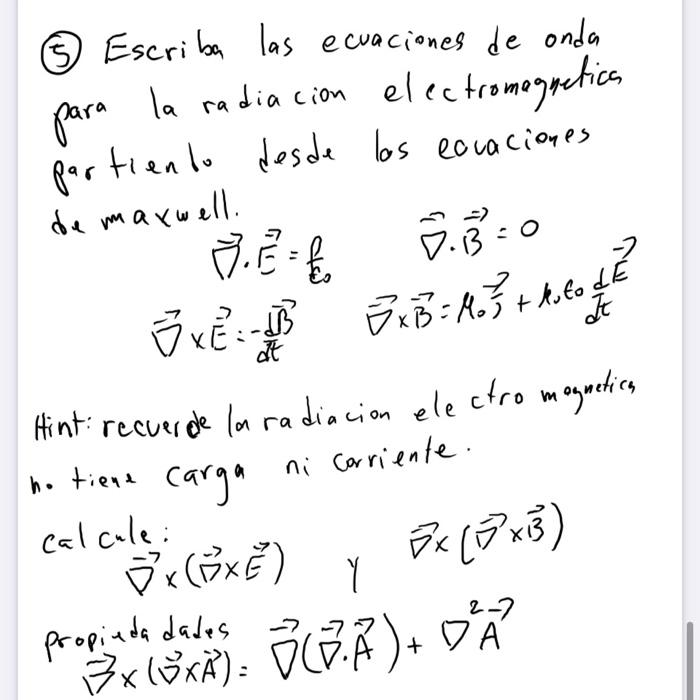 ⑤ Escriba las ecuaciones de onda
para la radiacion electromagnetica
partiendo desde las ecuaciones
de maxwell.
∇⃗·E⃗ = ρ/ε₀    ∇⃗·B⃗ = 0
∇⃗×E⃗ = -dB⃗/dt    ∇⃗×B⃗ = μ₀J⃗ + μ₀ε₀ dE⃗/dt
Hint: recuerde la radiacion electro magnetica
no tiene carga ni corriente.
calcule:
∇⃗×(∇⃗×E⃗)  y  ∇⃗×(∇⃗×B⃗)
propiedades
∇⃗×(∇⃗×A⃗) = ∇⃗(∇⃗·A⃗) + ∇²A⃗